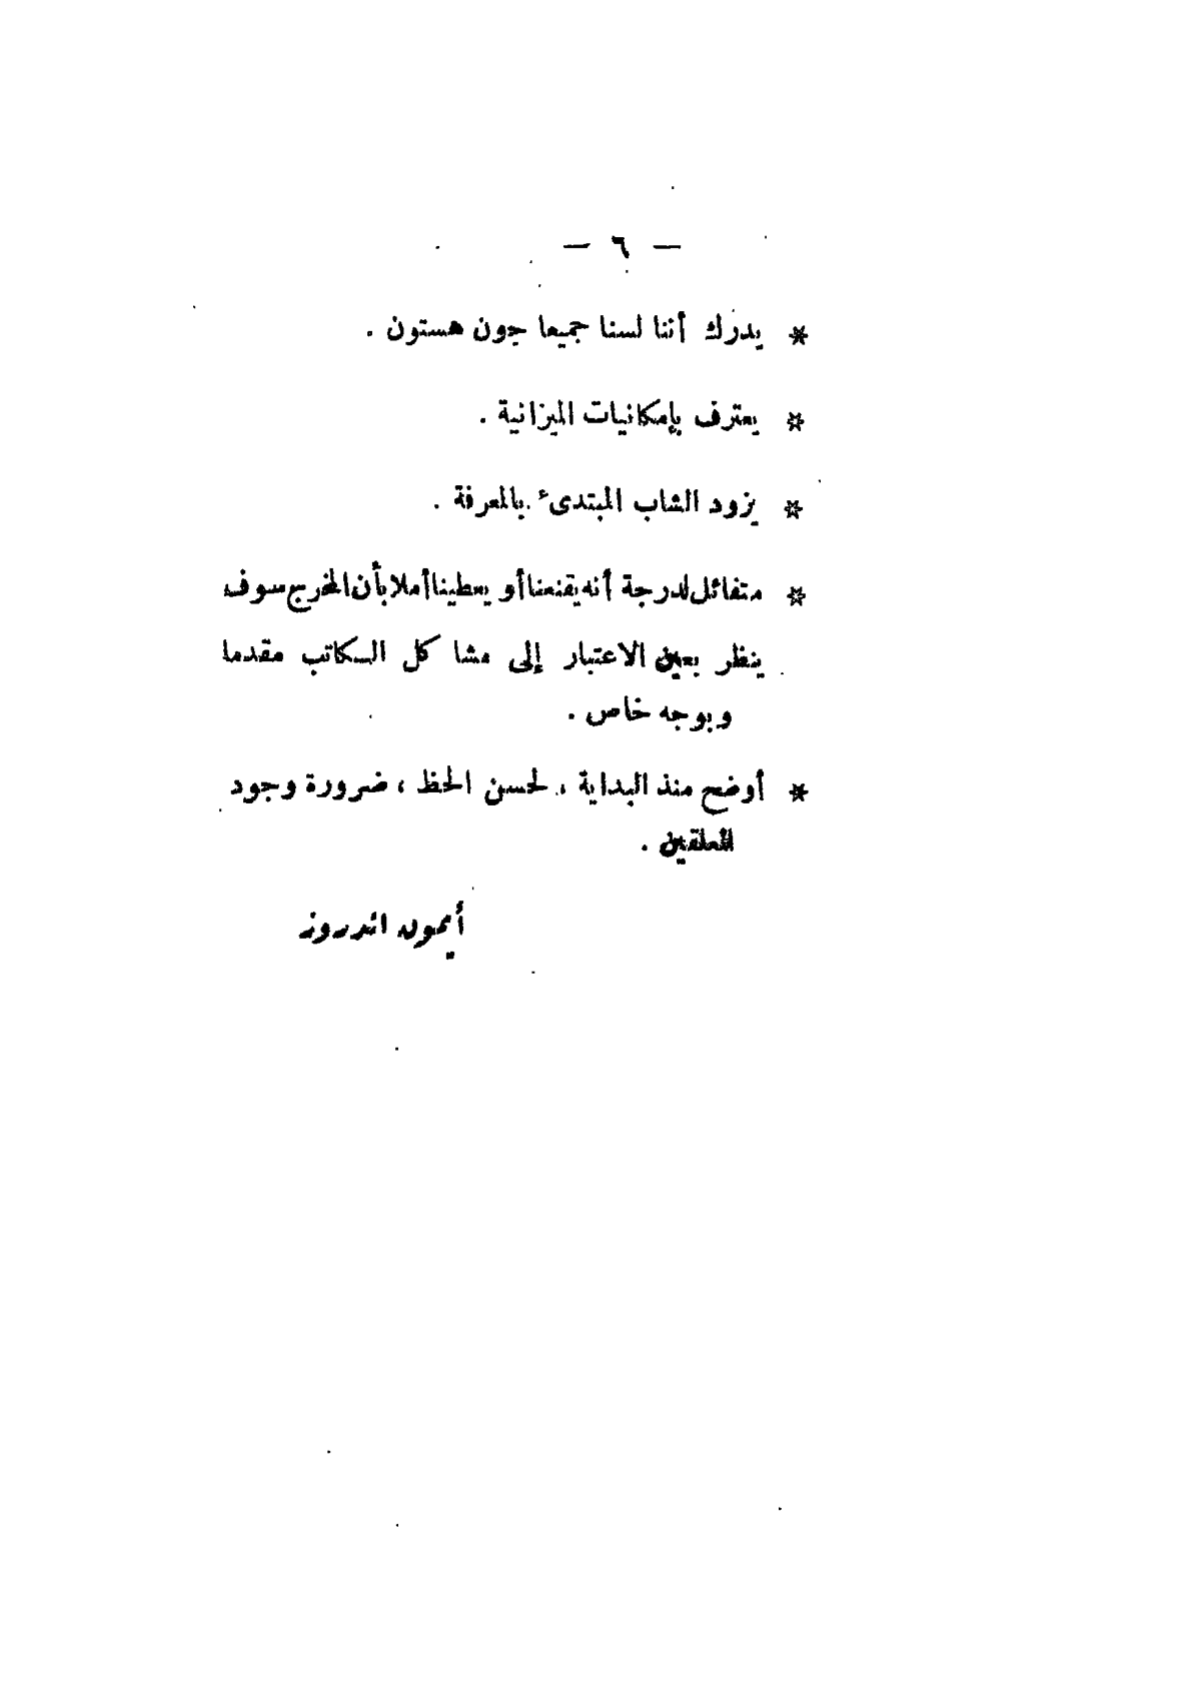 — ٦ —
* يدرك أننا لسنا جميعا جون هستون .
* يعترف بإمكانيات الميزانية .
* يزود الشاب المبتدىء بالمعرفة .
* متفائل لدرجة أنه يقنعنا أو يعطينا أملا بأن المخرج سوف
ينظر بعين الاعتبار إلى مشاكل الكاتب مقدما
وبوجه خاص .
* أوضح منذ البداية ، لحسن الحظ ، ضرورة وجود
المعلقين .
أيمون اندروز